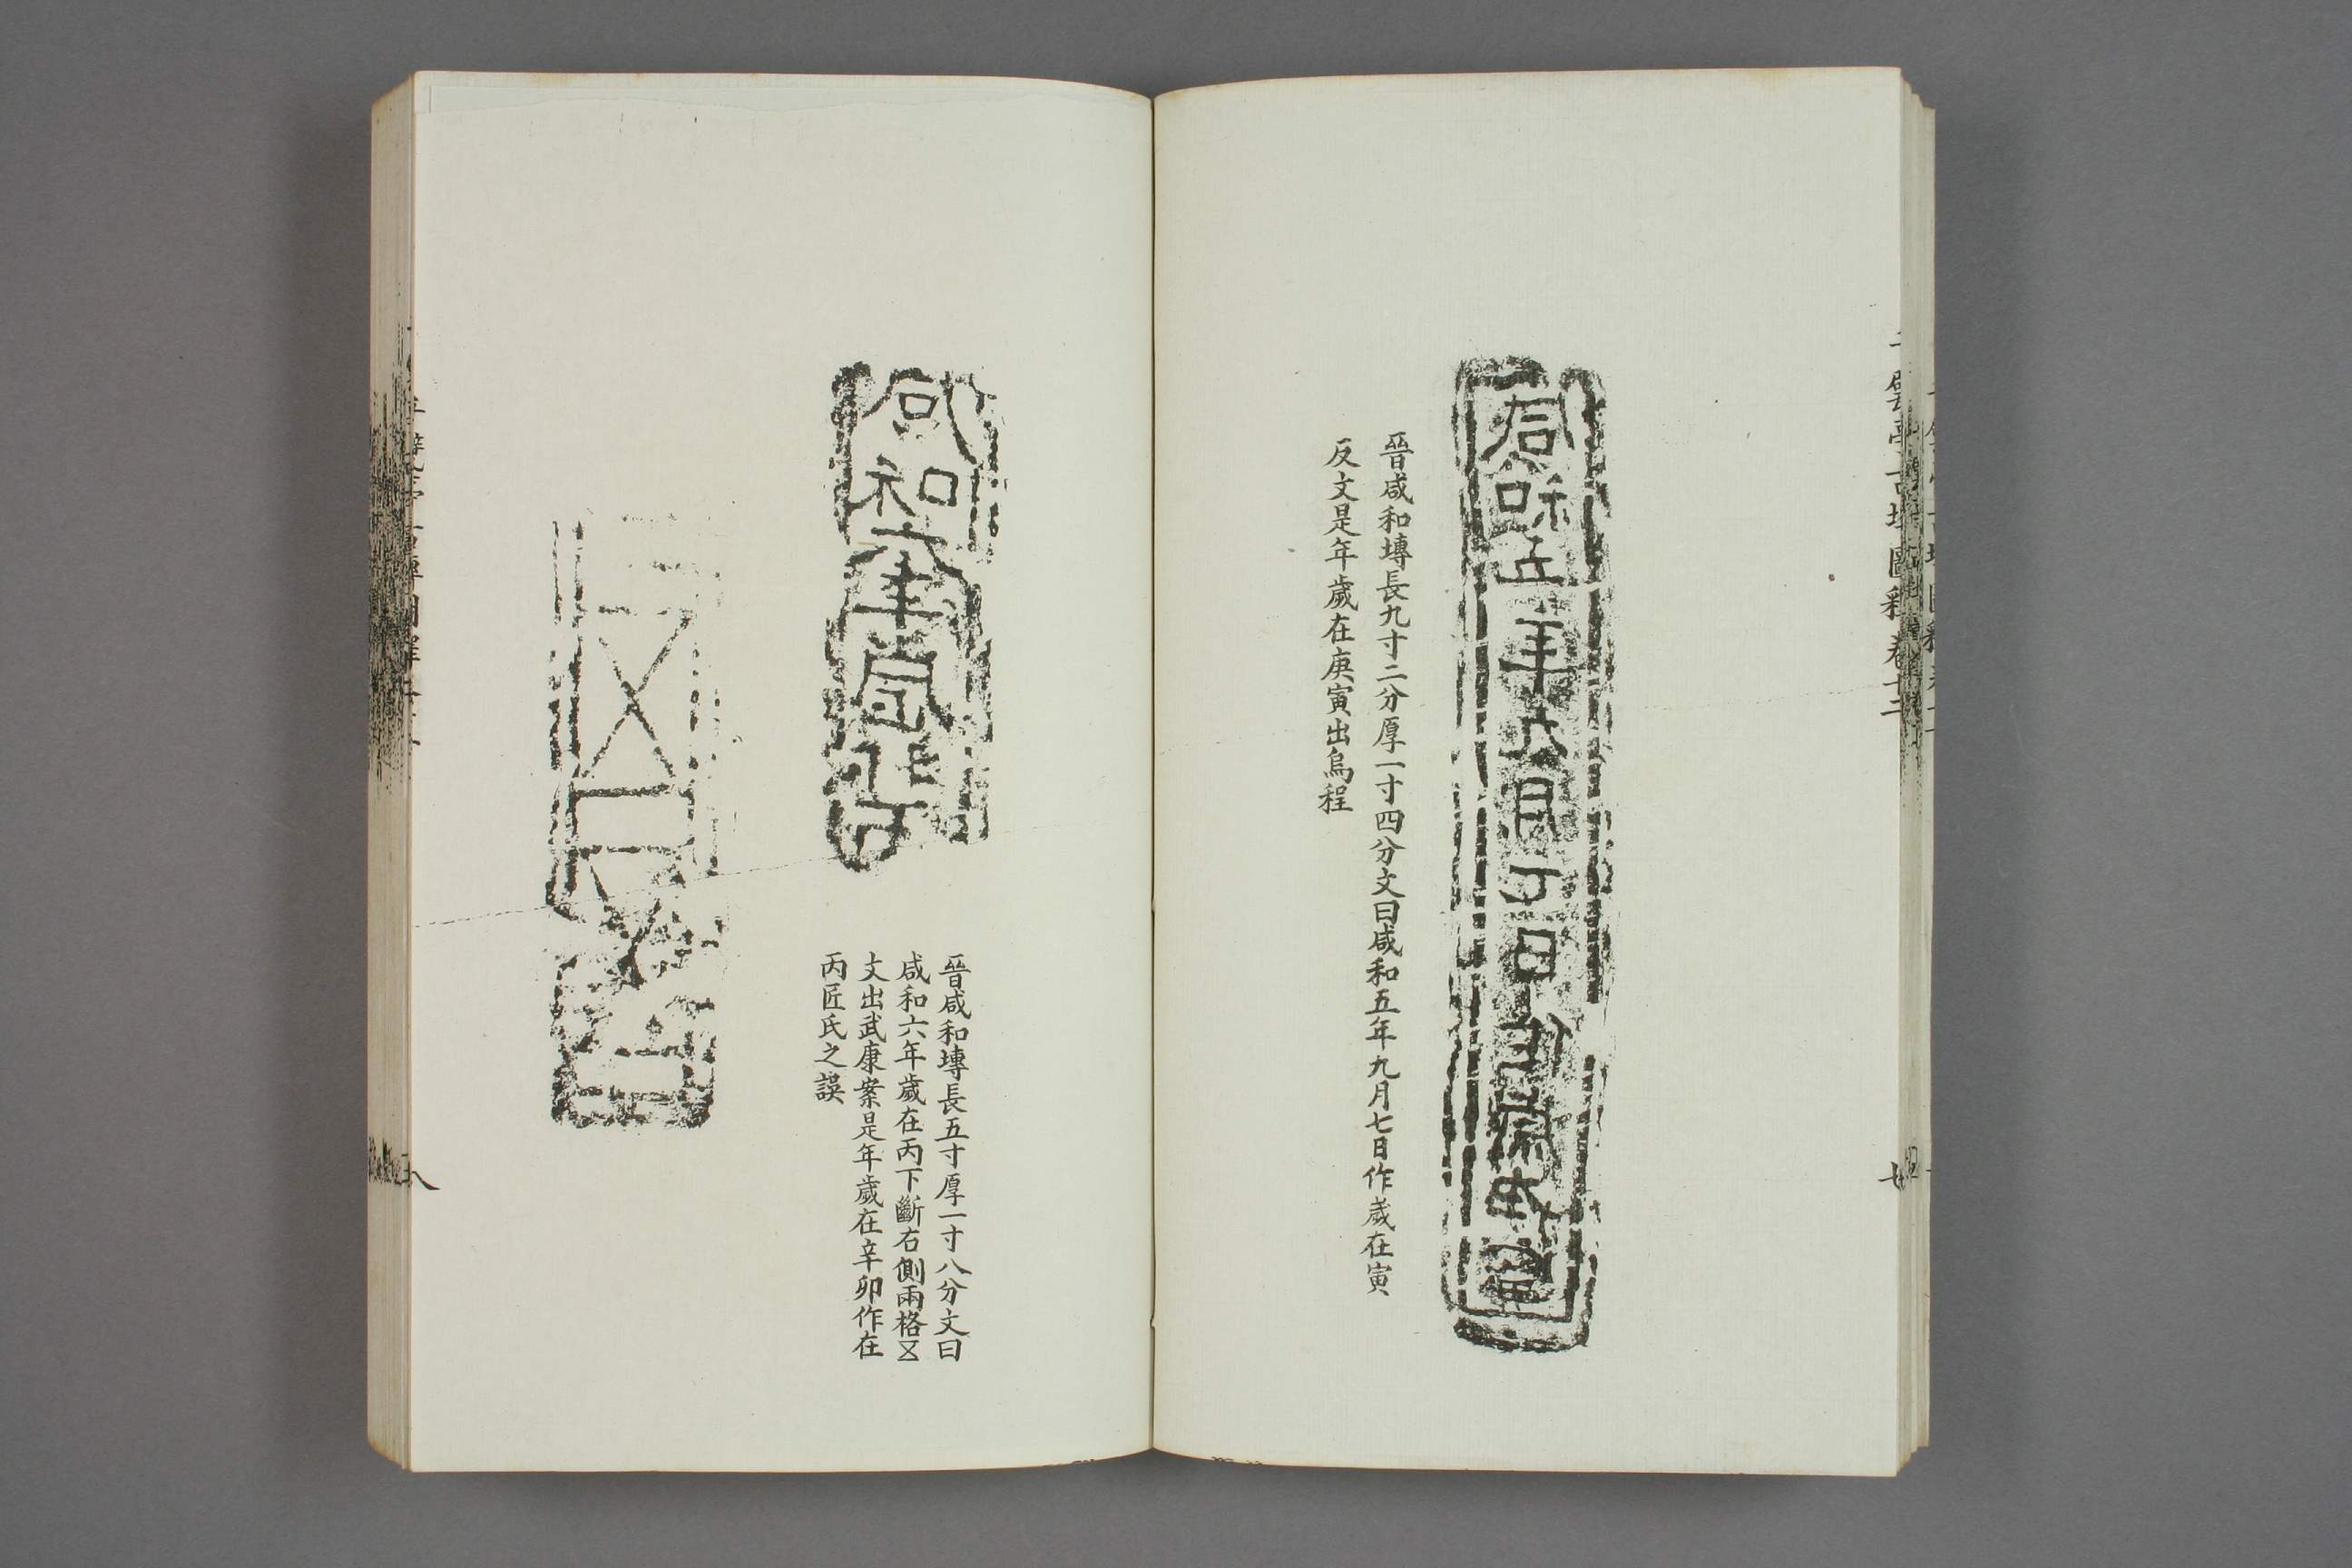 咸和五年九月七日作歲在寅
晉咸和塼長九寸二分厚一寸四分文曰咸和五年九月七日作歲在寅
反文是年歲在庚寅出烏程
咸和六年歲在丙
晉咸和塼長五寸厚一寸八分文曰
咸和六年歲在丙下斷右側兩格五
文出武康案是年歲在辛卯作在
丙匠氏之誤
八